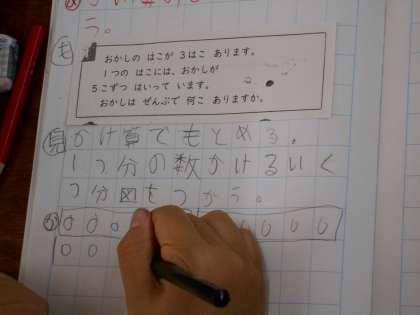 う。
も
おかしの はこが 3はこ あります。
1つの はこには、おかしが
5こずつ はいって います。
おかしは ぜんぶで 何こ ありますか。
見 かけ算でもとめる。
1つ分の数かけるいく
つ分図をつかう。